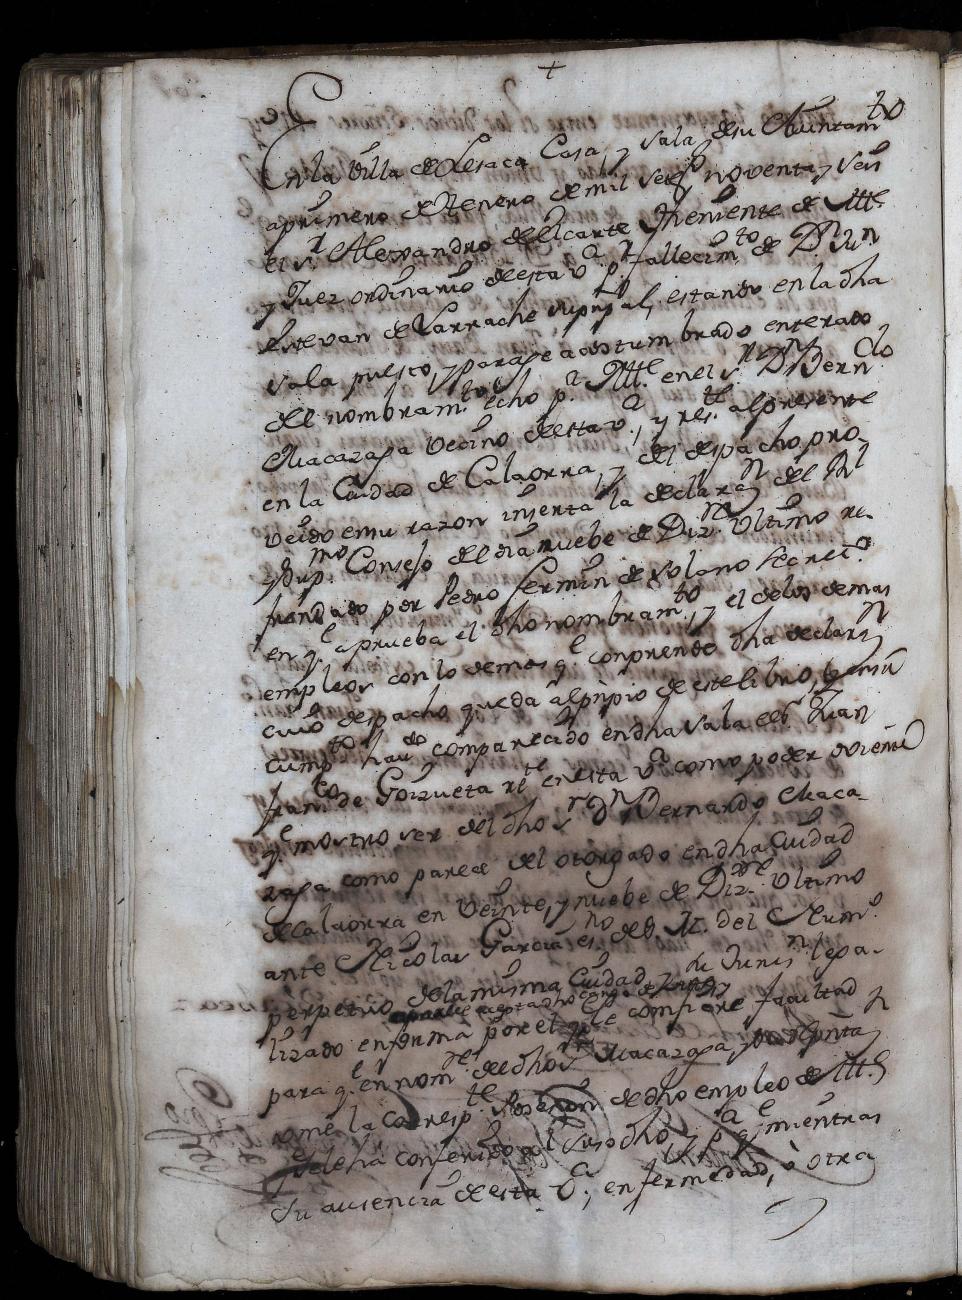 +
En la Villa de Lesaca Casa, y Sala, de su Aiuntam.to
a primero de Henero de mil setez.s noventa, y seis
el S.r Alexandro de Elcarte Theniente de Alc.e
y Juez ordinario de esta V.a p.r fallecim.to de D.n Jun
Estevan de Varrache su pnpal, estando en la dha
Sala puesto y paraje acostumbrado enterado
del nombram.to echo p.r Alc.e en el S.r D.n Bern.do
Macazaga vecino de esta V.a, y res.te al presente
en la Ciudad de Calaorra, y del despacho pro-
veido en su razon inserta la declaraz.n del R.l
y Sup.mo Consejo del dia nuebe de Diz.re ultimo re-
frendado por Pedro Fermin de Solano Secret.o
en q.e aprueba el dho nombram.to, y el de los demas
empleos con lo demas q.e conprende dha declaraz.n
cuio despacho queda al pnpio de este libro, y en su
cump.to haviendo comparecido en dha Sala el S.r Juan
Fran.co de Goizueta r.te en esta V.a como poder oviente
q.e mostro ser del dho S.r D.n Bernardo Macaza-
zaga como parece del otorgado en dha Ciudad
de Calaorra en veinte, y nuebe de Diz.re ultimo
ante Nicolas Garcia es.no de S. M. del Num.o
perpetuo de la misma Ciudad, y
lizado en forma por el q.e le confiere facultad
para q.e en nom.re del dho S.r Macazaga
tome la corresp.te Posesion de dho empleo de Alc.e
conferido al suso dho, y p.a q.e mientras
su ausencia de esta V.a, enfermedad, ò otra